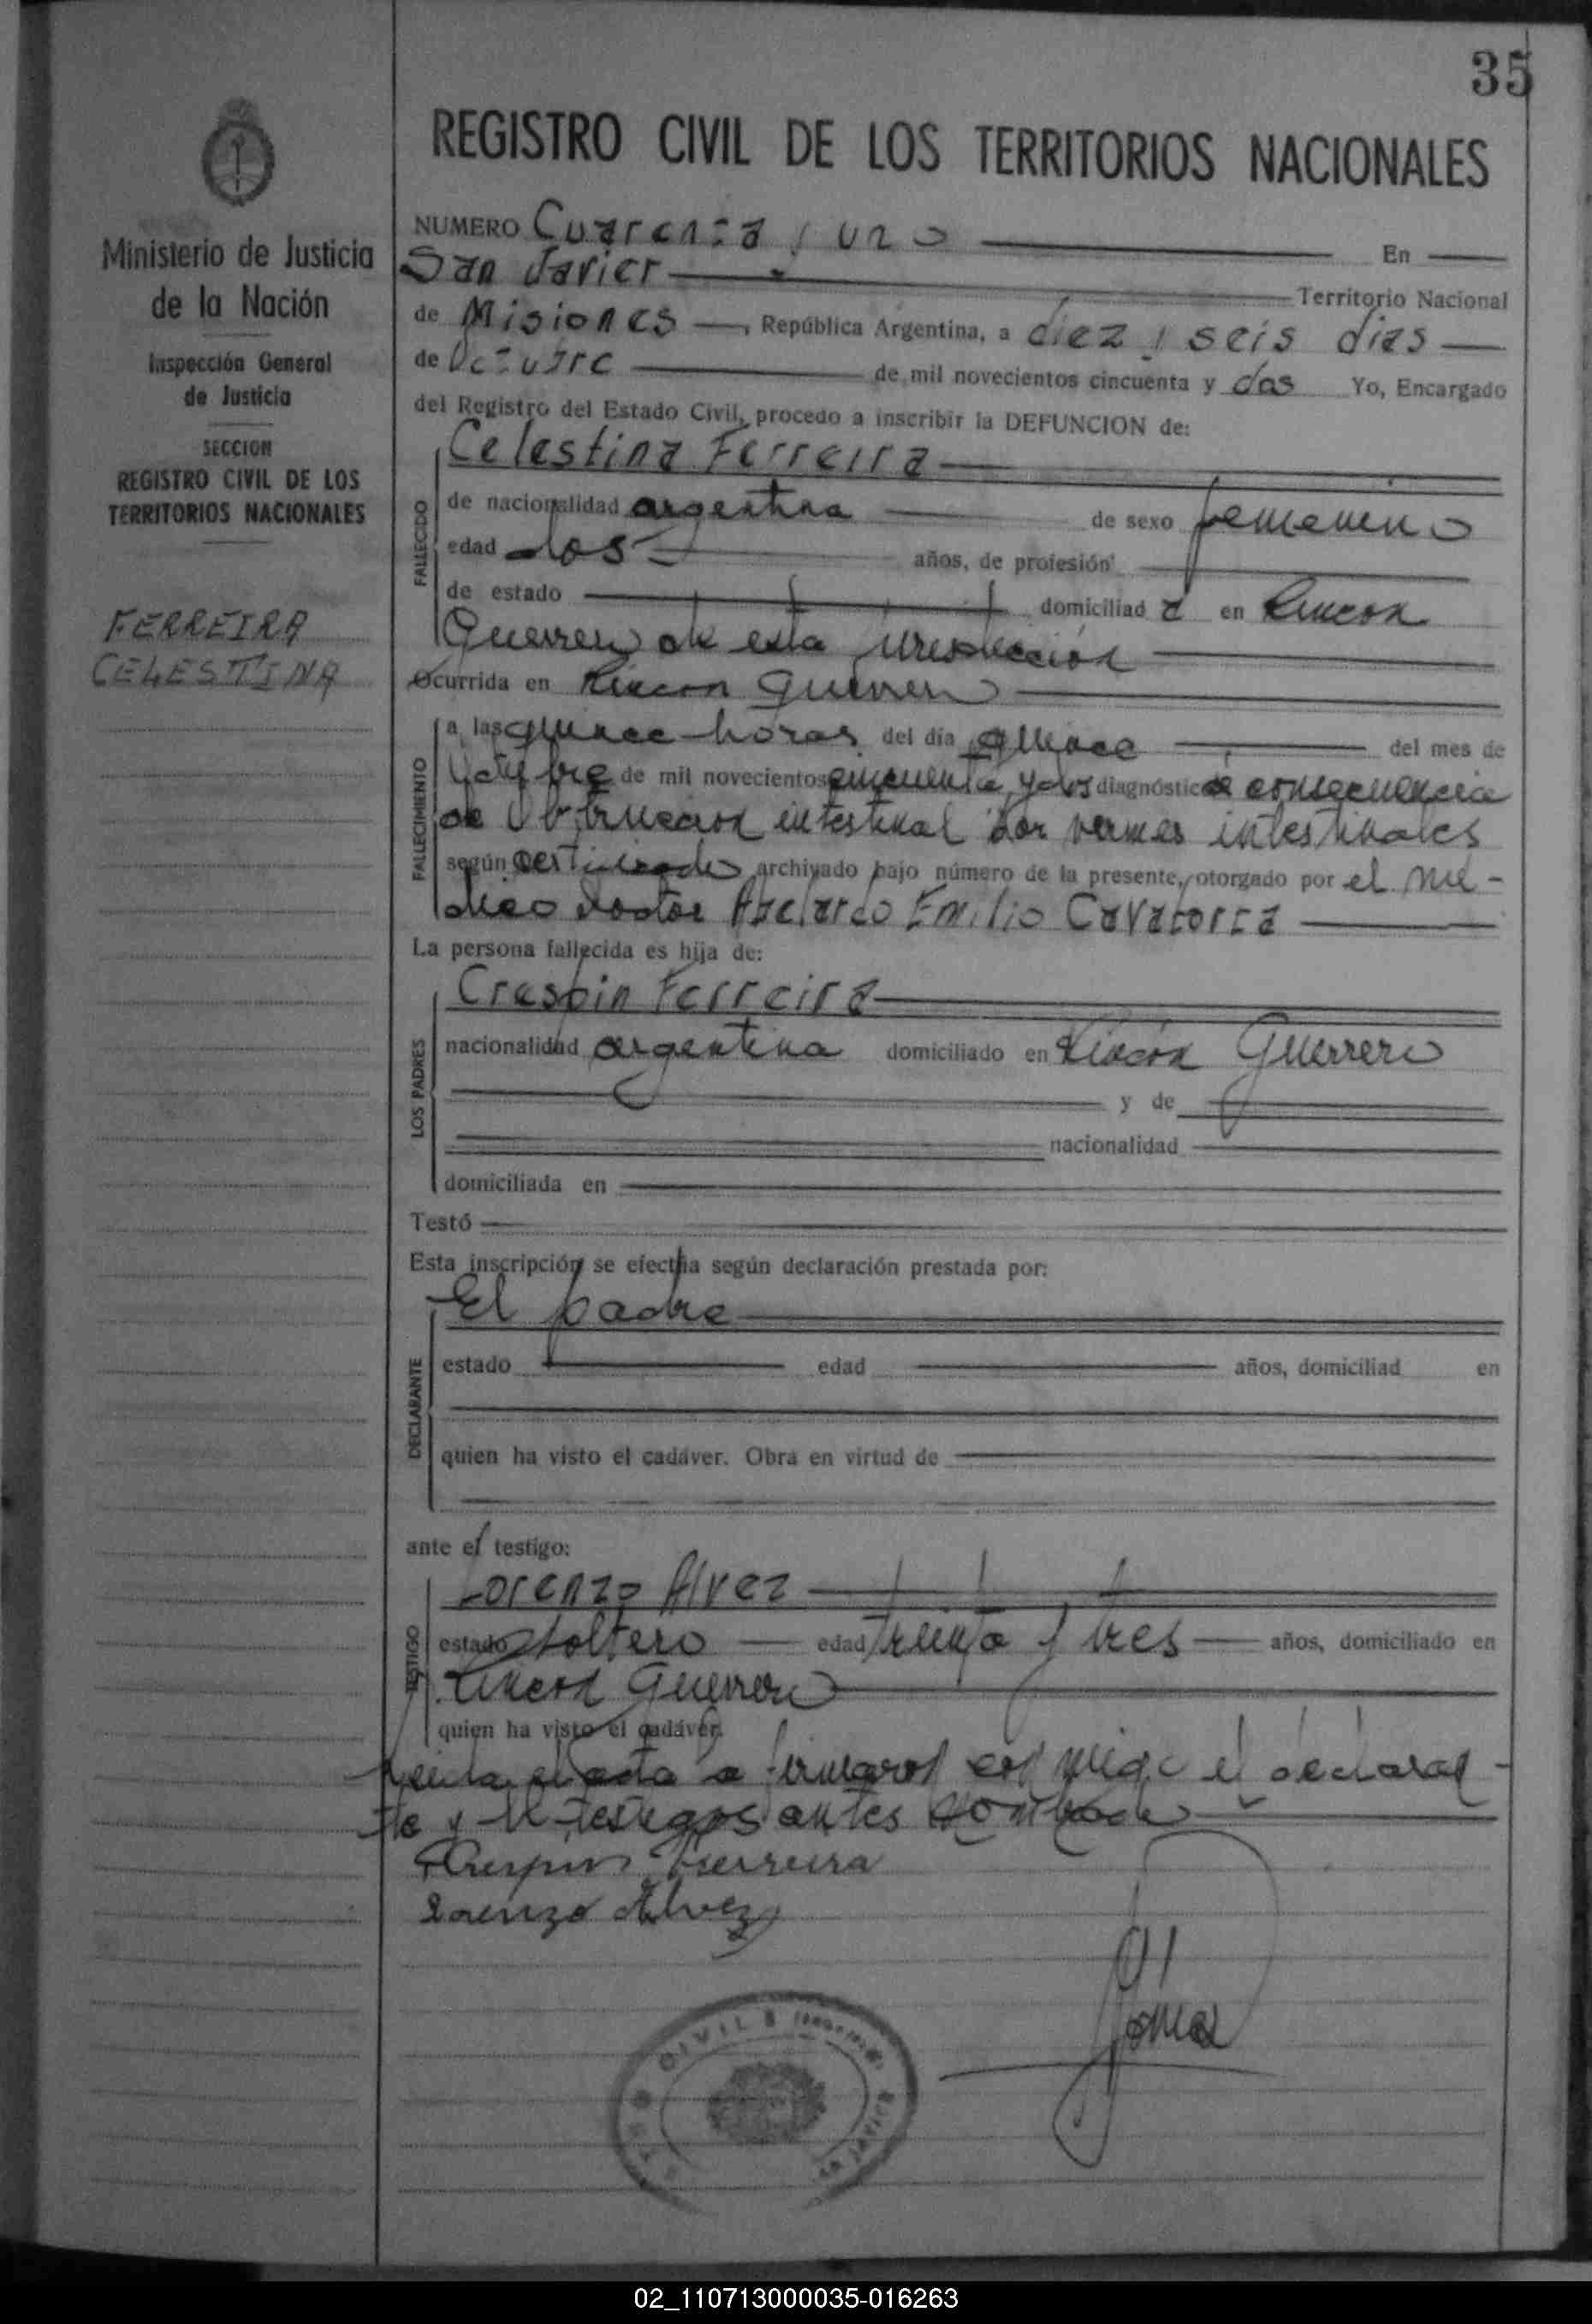 35
REGISTRO CIVIL DE LOS TERRITORIOS NACIONALES
Ministerio de Justicia
de la Nación
Inspección General
de Justicia
SECCION
REGISTRO CIVIL DE LOS
TERRITORIOS NACIONALES
FERREIRA
CELESTINA
NUMERO Cuarenta y uno En
San Javier Territorio Nacional
de Misiones, República Argentina, a diez y seis dias
de Octubre de mil novecientos cincuenta y dos Yo, Encargado
del Registro del Estado Civil, procedo a inscribir la DEFUNCION de:
Celestina Ferreira
FALLECIDO
de nacionalidad argentina de sexo femenino
edad dos años, de profesión
de estado domiciliad a en Rincon
Guerrero de esta jurisdiccion
Ocurrida en Rincon Guerrero
FALLECIMIENTO
a las quince horas del día quince del mes de
Octubre de mil novecientos cincuenta y dos diagnóstico a consecuencia
de Obtruccion intestinal por vermes intestinales
según certificado archivado bajo número de la presente, otorgado por el mé-
dico doctor Emilio Cavatorta
La persona fallecida es hija de:
Crespin Ferreira
LOS PADRES
nacionalidad argentina domiciliado en Rincón Guerrero
y de
nacionalidad
domiciliada en
Testó
Esta inscripción se efectúa según declaración prestada por:
El padre
DECLARANTE
estado edad años, domiciliad en
quien ha visto el cadáver. Obra en virtud de
ante el testigo:
Lorenzo Alvez
TESTIGO
estado soltero edad treinta y tres años, domiciliado en
Rincon Guerrero
quien ha visto el cadáver.
el acta a firmaron el declaran-
te y testigos antes
Crespin Ferreira
Lorenzo Alvez
CIVIL
02_110713000035-016263